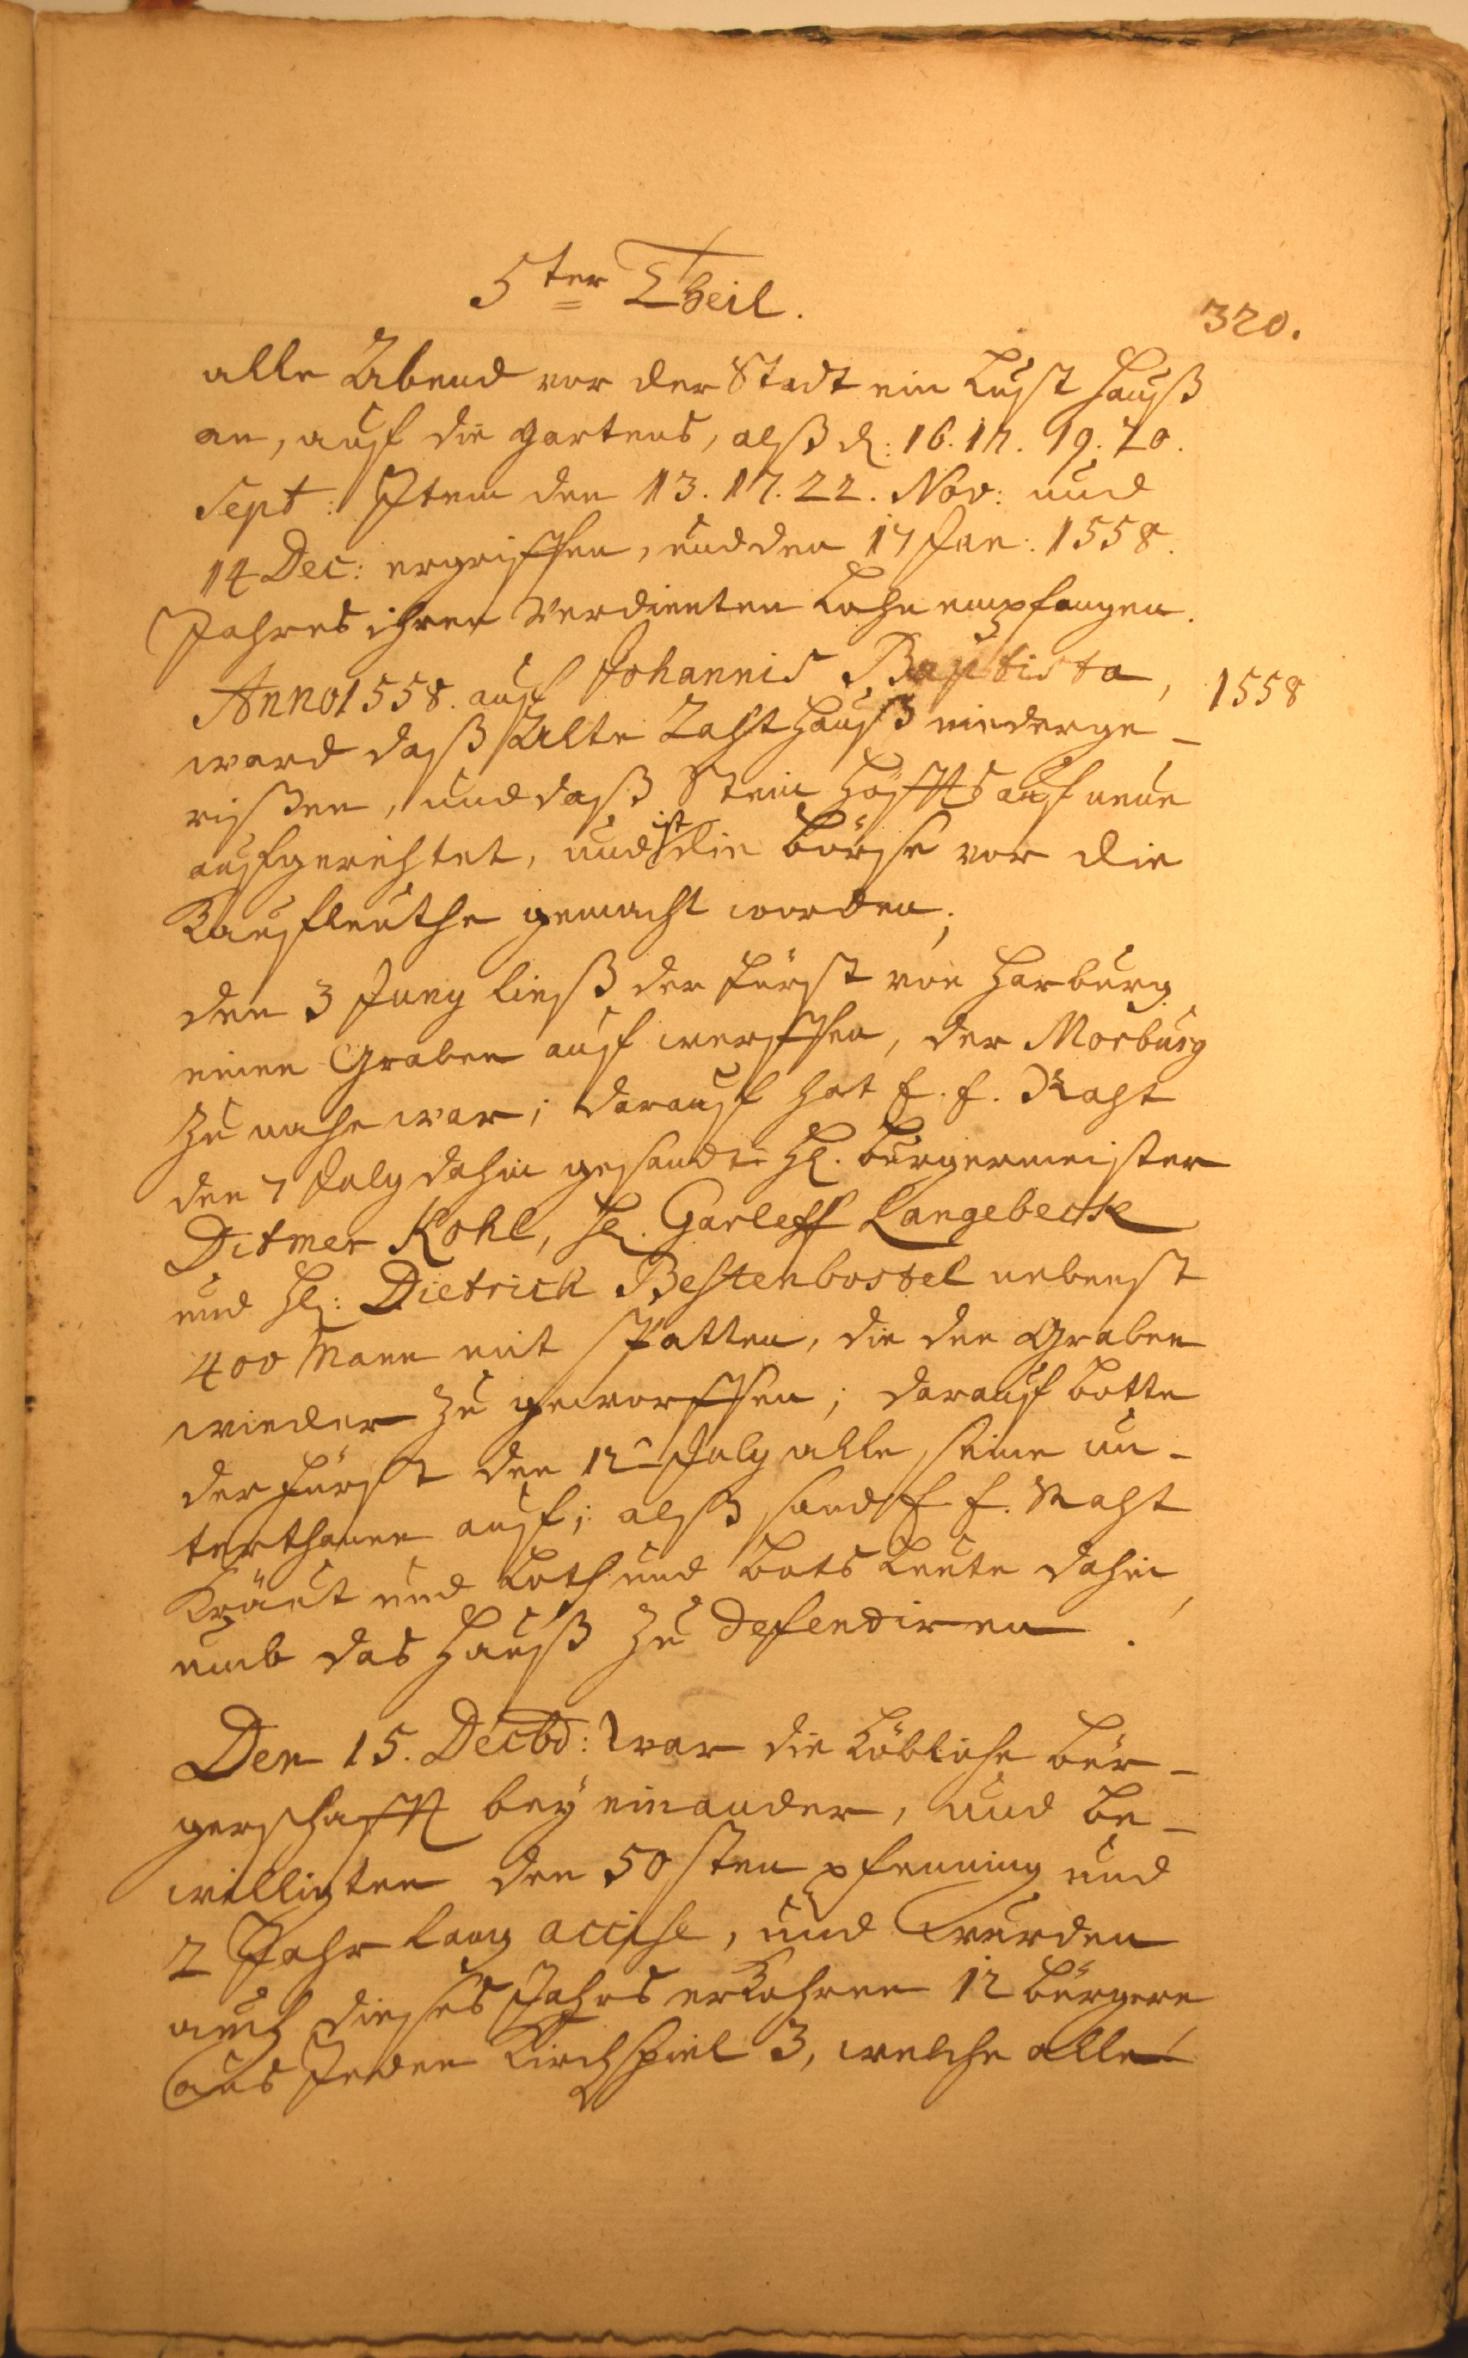 5ter Theil.
320.
alle Abend vor der Stadt ein Lust Hauß
an, auf die Gartens, alß d. 16. 17. 19. 20.
Sept: Item den 13. 17. 22. Nov: und
14 Dec: ergriffen, und den 17 Jan: 1558.
Jahres ihren Verdienten Lohn empfangen.
Anno 1558. auf Johannis Baptista,
1558
ward daß Alte Zahthauß niederge-
rißen, und daß Stein Höfft auf neue
aufgerichtet, und ist die Börse vor die
Kaufleuthe gemacht worden;
den 3 Juny ließ der Fürst von Harburg
einen Graben auf werffen, der Morburg
zu nahe war; darauf hat E. E. Raht
den 7 July dahin gesandt H. Bürgermeister
Ditmer Kohl, H. Garleff Langebeck
und H: Dietrich Bestenbostel nebenst
400 Mann mit Spatten, die den Graben
wieder zu geworffen; darauf botte
der Fürst den 12 July alle seine un-
terthanen auf; alß sandt E. E. Raht
Kraut und Loth und Bots Leute dahin,
umb das Hauß zu defendiren.
Den 15. Decbd: war die Löbliche Bür-
gerschafft bey einander, und be-
willigten den 50sten pfenning und
2 Jahr lang accise, und wurden
auch dieses Jahrs erkohren 12 Bürgere
aus Jeden Kirchspiel 3, welche alle